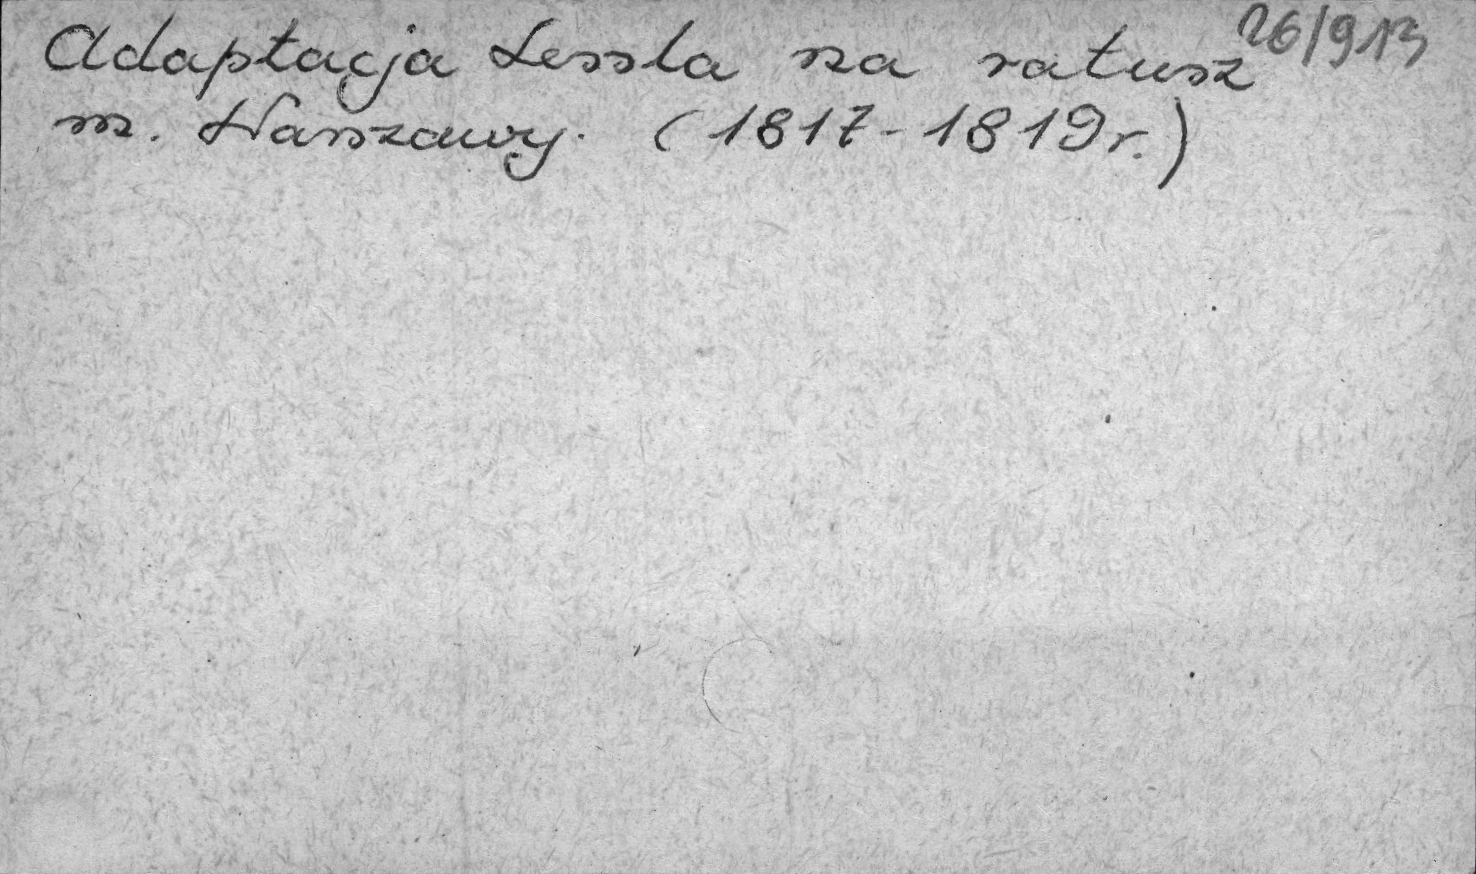 26/913
Adaptacja Lessla na ratusz
m. Warszawy. (1817-1819r.)